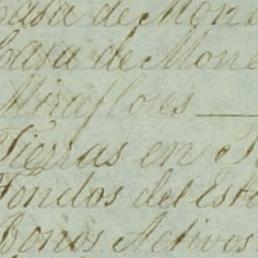 Casa de Mone
Casa de Mone
Miraflores
Tierras en
Fondos del Est
Bonos Activos